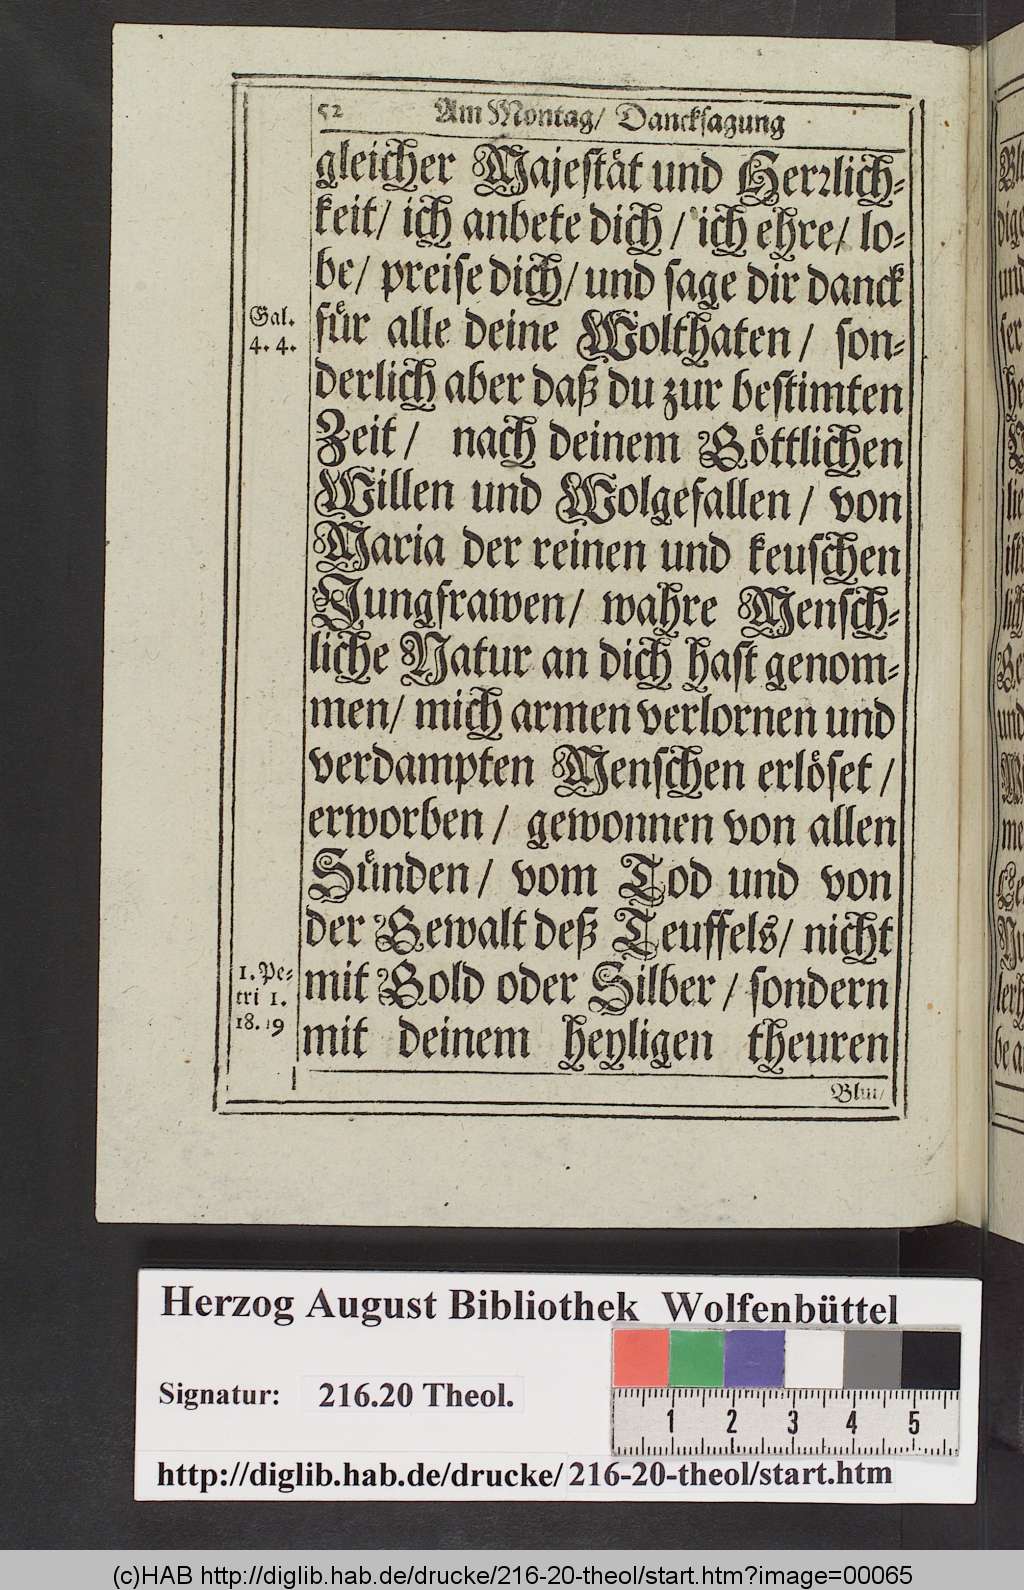 52 Am Montag/ Dancksagung
gleicher Majestät und Herrlich-
keit/ ich anbete dich/ ich ehre/ lo-
be/ preise dich/ und sage dir danck
Gal.
4. 4.
für alle deine Wolthaten/ son-
derlich aber daß du zur bestimten
Zeit/ nach deinem Göttlichen
Willen und Wolgefallen/ von
Maria der reinen und keuschen
Jungfrawen/ wahre Mensch-
liche Natur an dich hast genom-
men/ mich armen verlornen und
verdampten Menschen erlöset/
erworben/ gewonnen von allen
Sünden/ vom Tod und von
der Gewalt deß Teuffels/ nicht
1. Pe-
tri 1.
18. 19
mit Gold oder Silber/ sondern
mit deinem heyligen theuren
Blut/
Herzog August Bibliothek Wolfenbüttel
Signatur: 216.20 Theol.
1 2 3 4 5
http://diglib.hab.de/drucke/216-20-theol/start.htm
(c)HAB http://diglib.hab.de/drucke/216-20-theol/start.htm?image=00065